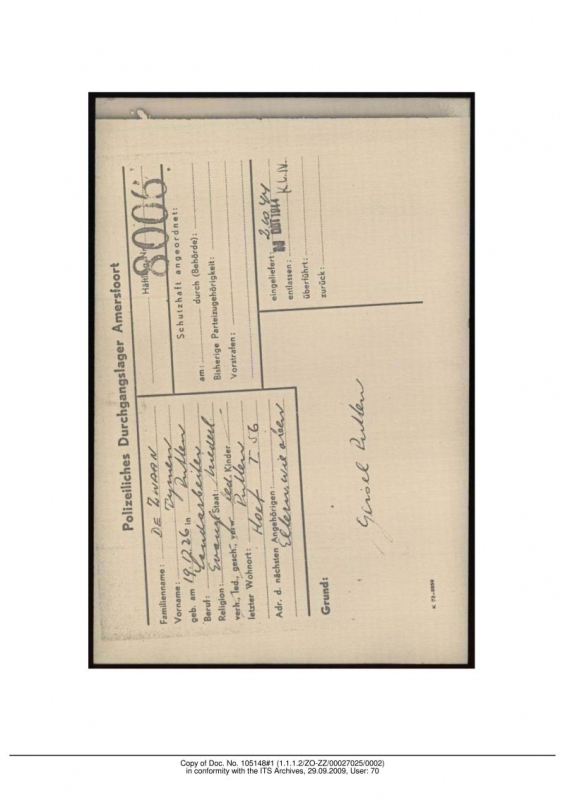 Polizeiliches Durchgangslager Amersfoort
Familienname: DE ZWAAN
Vorname: Dymen
geb. am 19. 26 in Putten
Beruf: Landarbeiter
Religion: Evangl Staat: Niederl.
verh., led., gesch., verw. led. Kinder
letzter Wohnort: Putten
Hoef T 56
Adr. d. nächsten Angehörigen:
Eltern wie oben
Häftling Nr. 8006
Schutzhaft angeordnet:
am: durch (Behörde):
Bisherige Parteizugehörigkeit:
Vorstrafen:
eingeliefert: 2.10.44
entlassen: OKT 1944 K.L.N.
überführt:
zurück:
Grund:
Geisel Putten
Copy of Doc. No. 105148#1 (1.1.1.2/ZO-ZZ/00027025/0002)
in conformity with the ITS Archives, 29.09.2009, User: 70